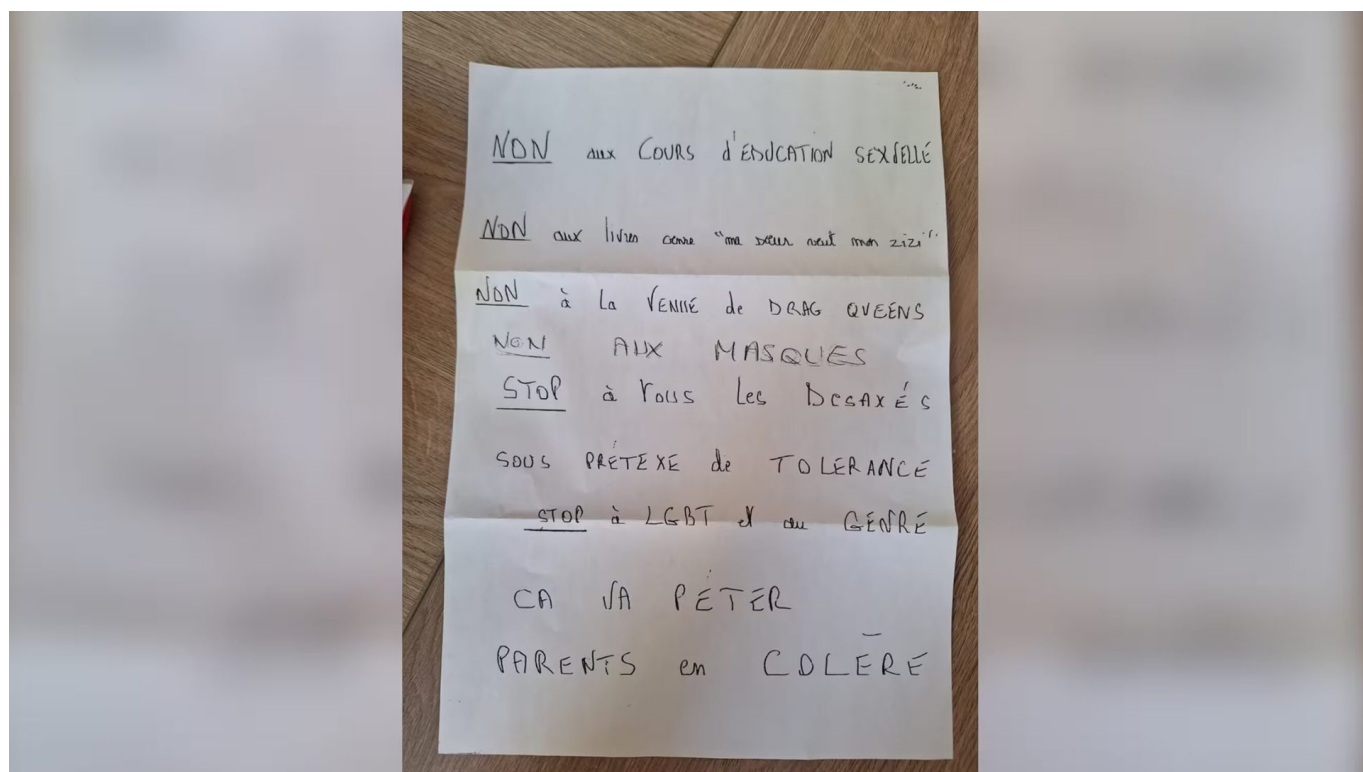 NON aux COURS d'EDUCATION SEXUELLE
NON aux livres genre "ma sœur veut mon zizi".
NON à La VENUE de DRAG QUEENS
NON AUX MASQUES
STOP à Tous Les DESAXÉS
SOUS PRÉTEXE de TOLERANCE
STOP à LGBT et au GENRE
CA VA PÉTER
PARENTS en COLERE